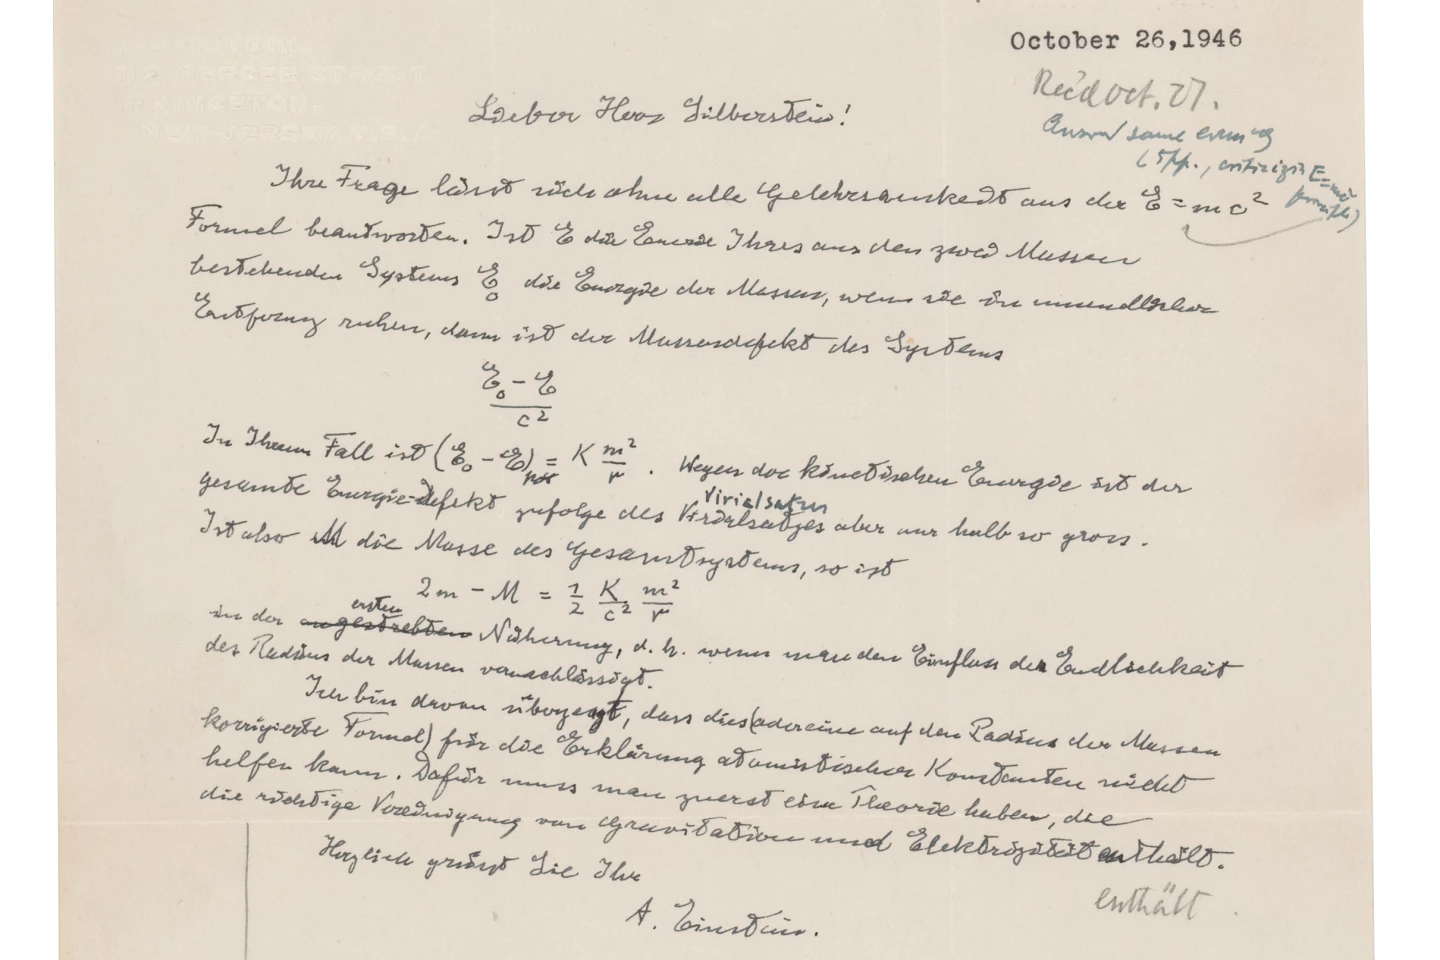 October 26, 1946
Rec'd Oct. 27.
Lieber Herr Silberstein!
Answ same evening
(5 pp., criticizing E=mc²
principle)
Ihre Frage lässt sich ohne alle Gelehrsamkeit aus der E = mc²
Formel beantworten. Ist E die Energie Ihres aus den zwei Massen
bestehenden Systems E₀ die Energie der Massen, wenn sie in unendlicher
Entfernung ruhen, dann ist der Massendefekt des Systems
E₀ - E
c²
In Ihrem Fall ist (E₀ - E)pot = K m²/r . Wegen der kinetischen Energie ist der
Virialsatzes
gesamte Energie-Defekt zufolge des Virialsatzes aber nur halb so gross.
Ist also M die Masse des Gesamtsystems, so ist
2m - M = 1/2 K/c² m²/r
ersten
in der angestrebten Näherung, d. h. wenn man den Einfluss der Endlichkeit
des Radius der Massen vernachlässigt.
Ich bin davon überzeugt, dass dies (oder eine auf den Radius der Massen
korrigierte Formel) für die Erklärung atomistischer Konstanten nicht
helfen kann. Dafür muss man zuerst eine Theorie haben, die
die richtige Vereinigung von Gravitation und Elektrizität enthält.
Herzlich grüsst Sie Ihr
enthält
A. Einstein.